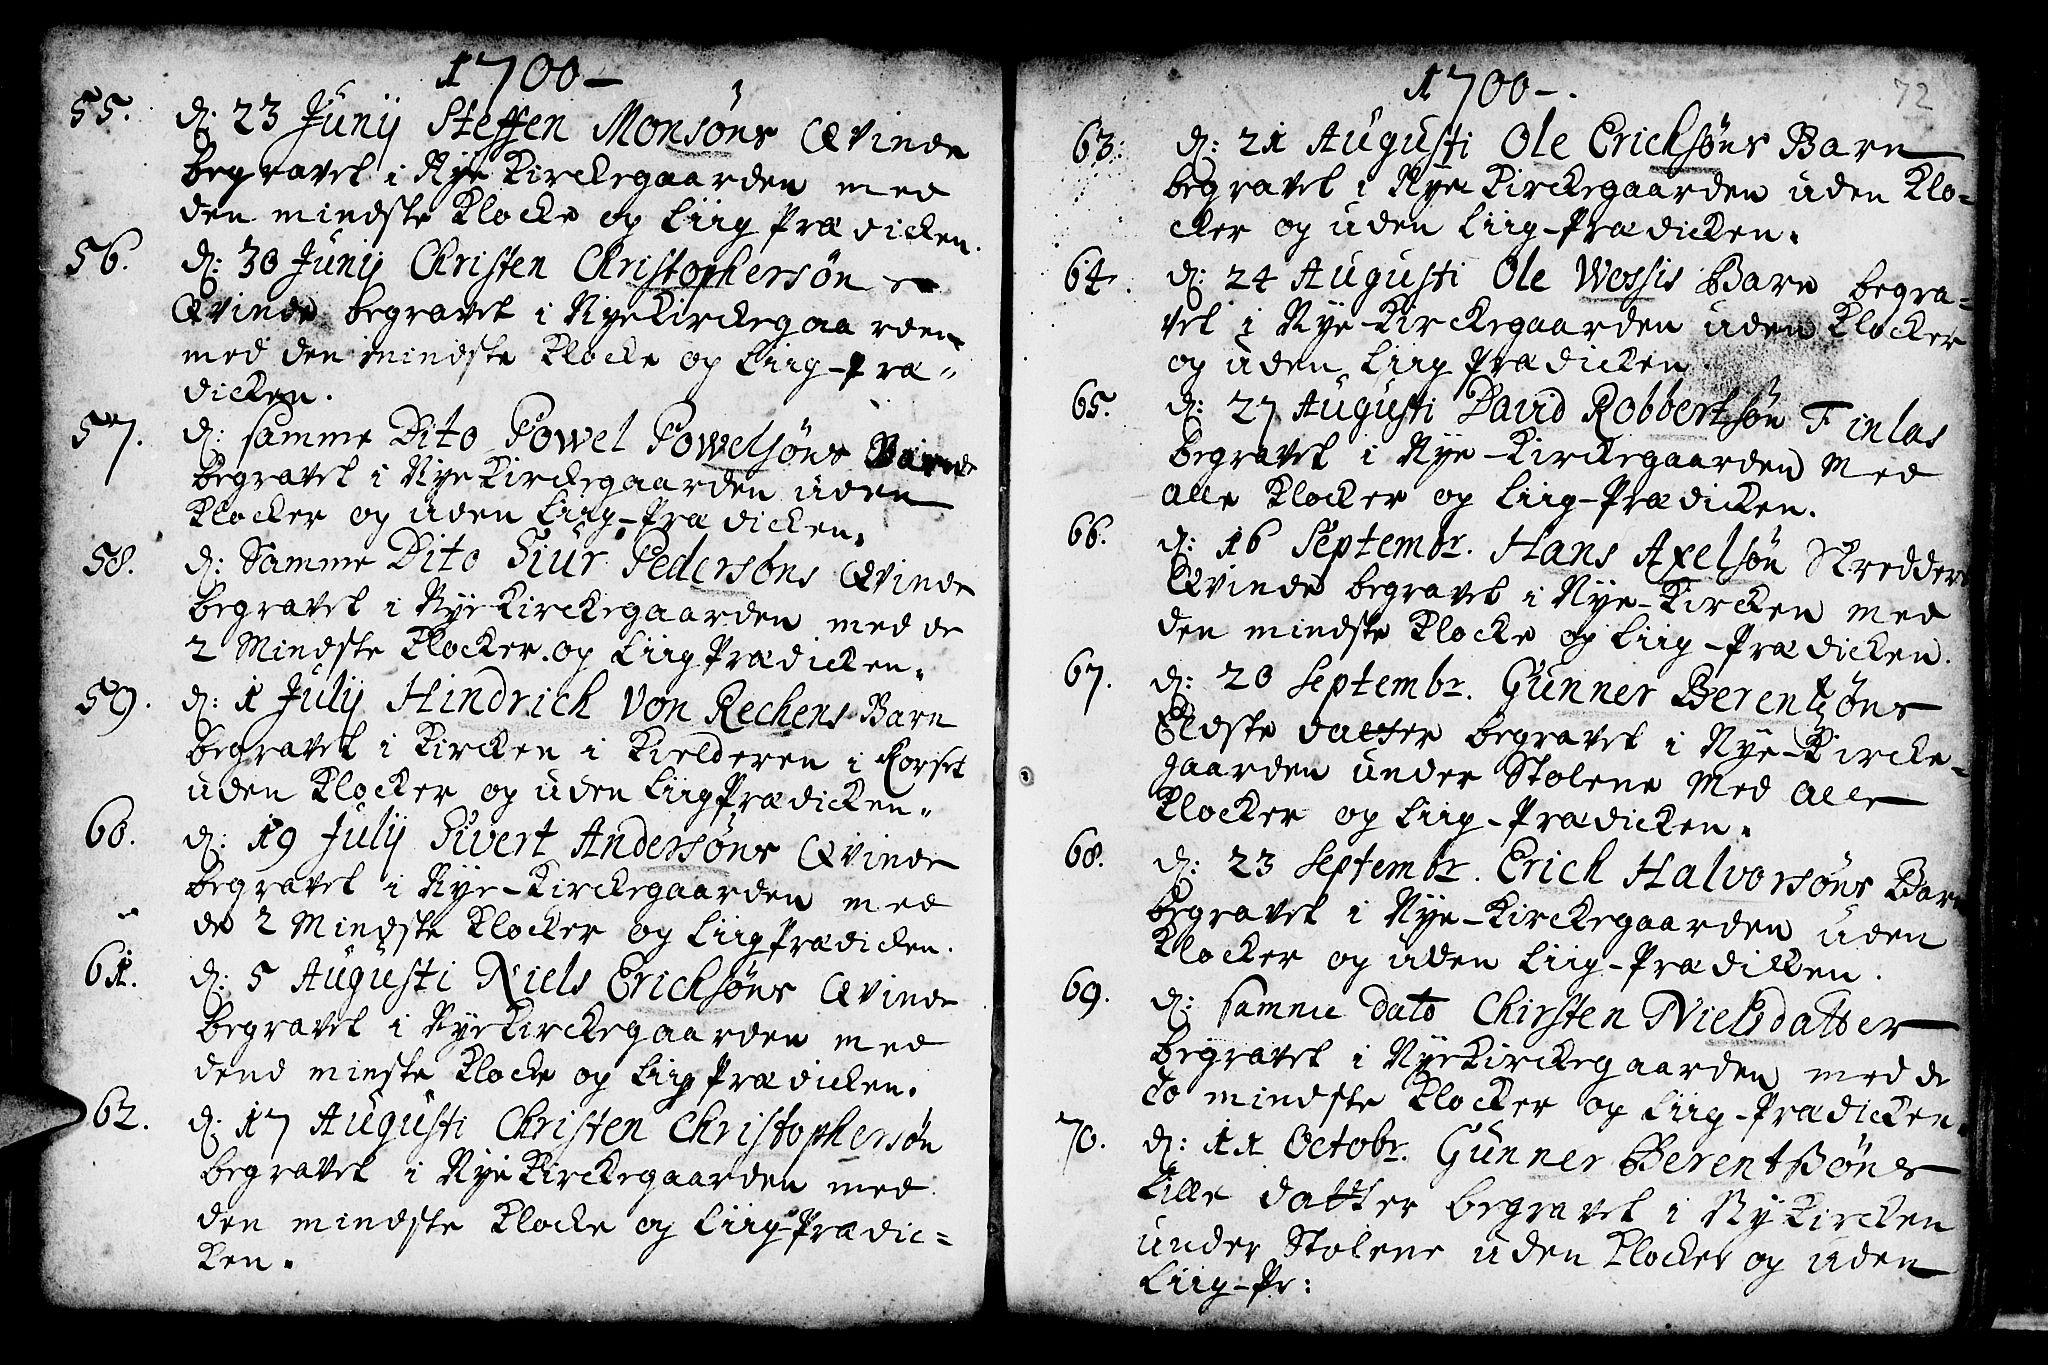 1700-
55. d: 23 Junij Steffen Monsöns Qvinde
begravet i Nye Kirckegaarden med
den mindste Klocke og Liig Prædicken.
56. d: 30 Junij Christen Christophersön s
Qvinde begravet i Nye Kirckegaarden
med den mindste Klocke og Liig-Præ-
dicken.
57. d: samme Dito Powel Powelsöns Barn
begravet i Nye Kirckegaarden uden
Klocker og uden Liig-Prædicken.
58. d: Samme Dito Siur Pedersöns Qvinde
begravet i Nye Kirckegaarden med de
2 Mindste Klocker og Liig Prædicken.
59. d: 1 Julij Hindrich von Rechens Barn
begravet i Kircken i Kielderen i Corset
uden Klocker og uden Liig Prædicken.
60. d: 19 Julij Sivert Andersöns Qvinde
begravet i Nye-Kirckegaarden med
de 2 Mindste Klocker og Liig Prædicken.
61. d: 5 Augusti Niels Erichsöns Qvinde
begravet i Nye Kirckegaarden med
dend minste Klocke og Liig Prædicken.
62. d: 17 Augusti Christen Christophersön
begravet i Nye Kirckegaarden med
den mindste Klocke og Liig-Prædic=
ken.
72
1700-.
63. d: 21 Augusti Ole Erichsöns Barn
begravet i Nye Kirckegaarden uden Klo-
cker og uden Liig-Prædicken.
64. d: 24 Augusti Ole Wossis Barn begra-
vet i Nye-Kirckegaarden uden Klocker
og uden Liig Prædicken
65. d: 27 Augusti David Robbertsön Finlas
begravet i Nye-Kirckegaarden Med
alle Klocker og Liig-Prædicken.
66. d: 16 Septembr. Hans Axelsön Skredders
Qvinde begravet i Nye-Kircken med
den mindste Klocke og Liig-Prædicken.
67. d: 20 Septembr. Gunner Berentzöns
Eldste datter begravet i Nye-Kircke-
gaarden under Stolene Med alle
Klocker og Liig-Prædicken.
68. d: 23 Septembr. Erich Halvorsöns Barn
begravet i Nye-Kirckegaarden uden
Klocker og uden Liig-Prædicken.
69. d: samme dato Chirsten Nielsdatter
begravet i Nye Kirckegaarden med de
to mindste Klocker og Liig-Prædicken.
70. d: 11 Octobr. Gunner Berentßöns
Lille datter begravet i Ny Kircken
under Stolene uden Klocker og uden
Liig-Pr: